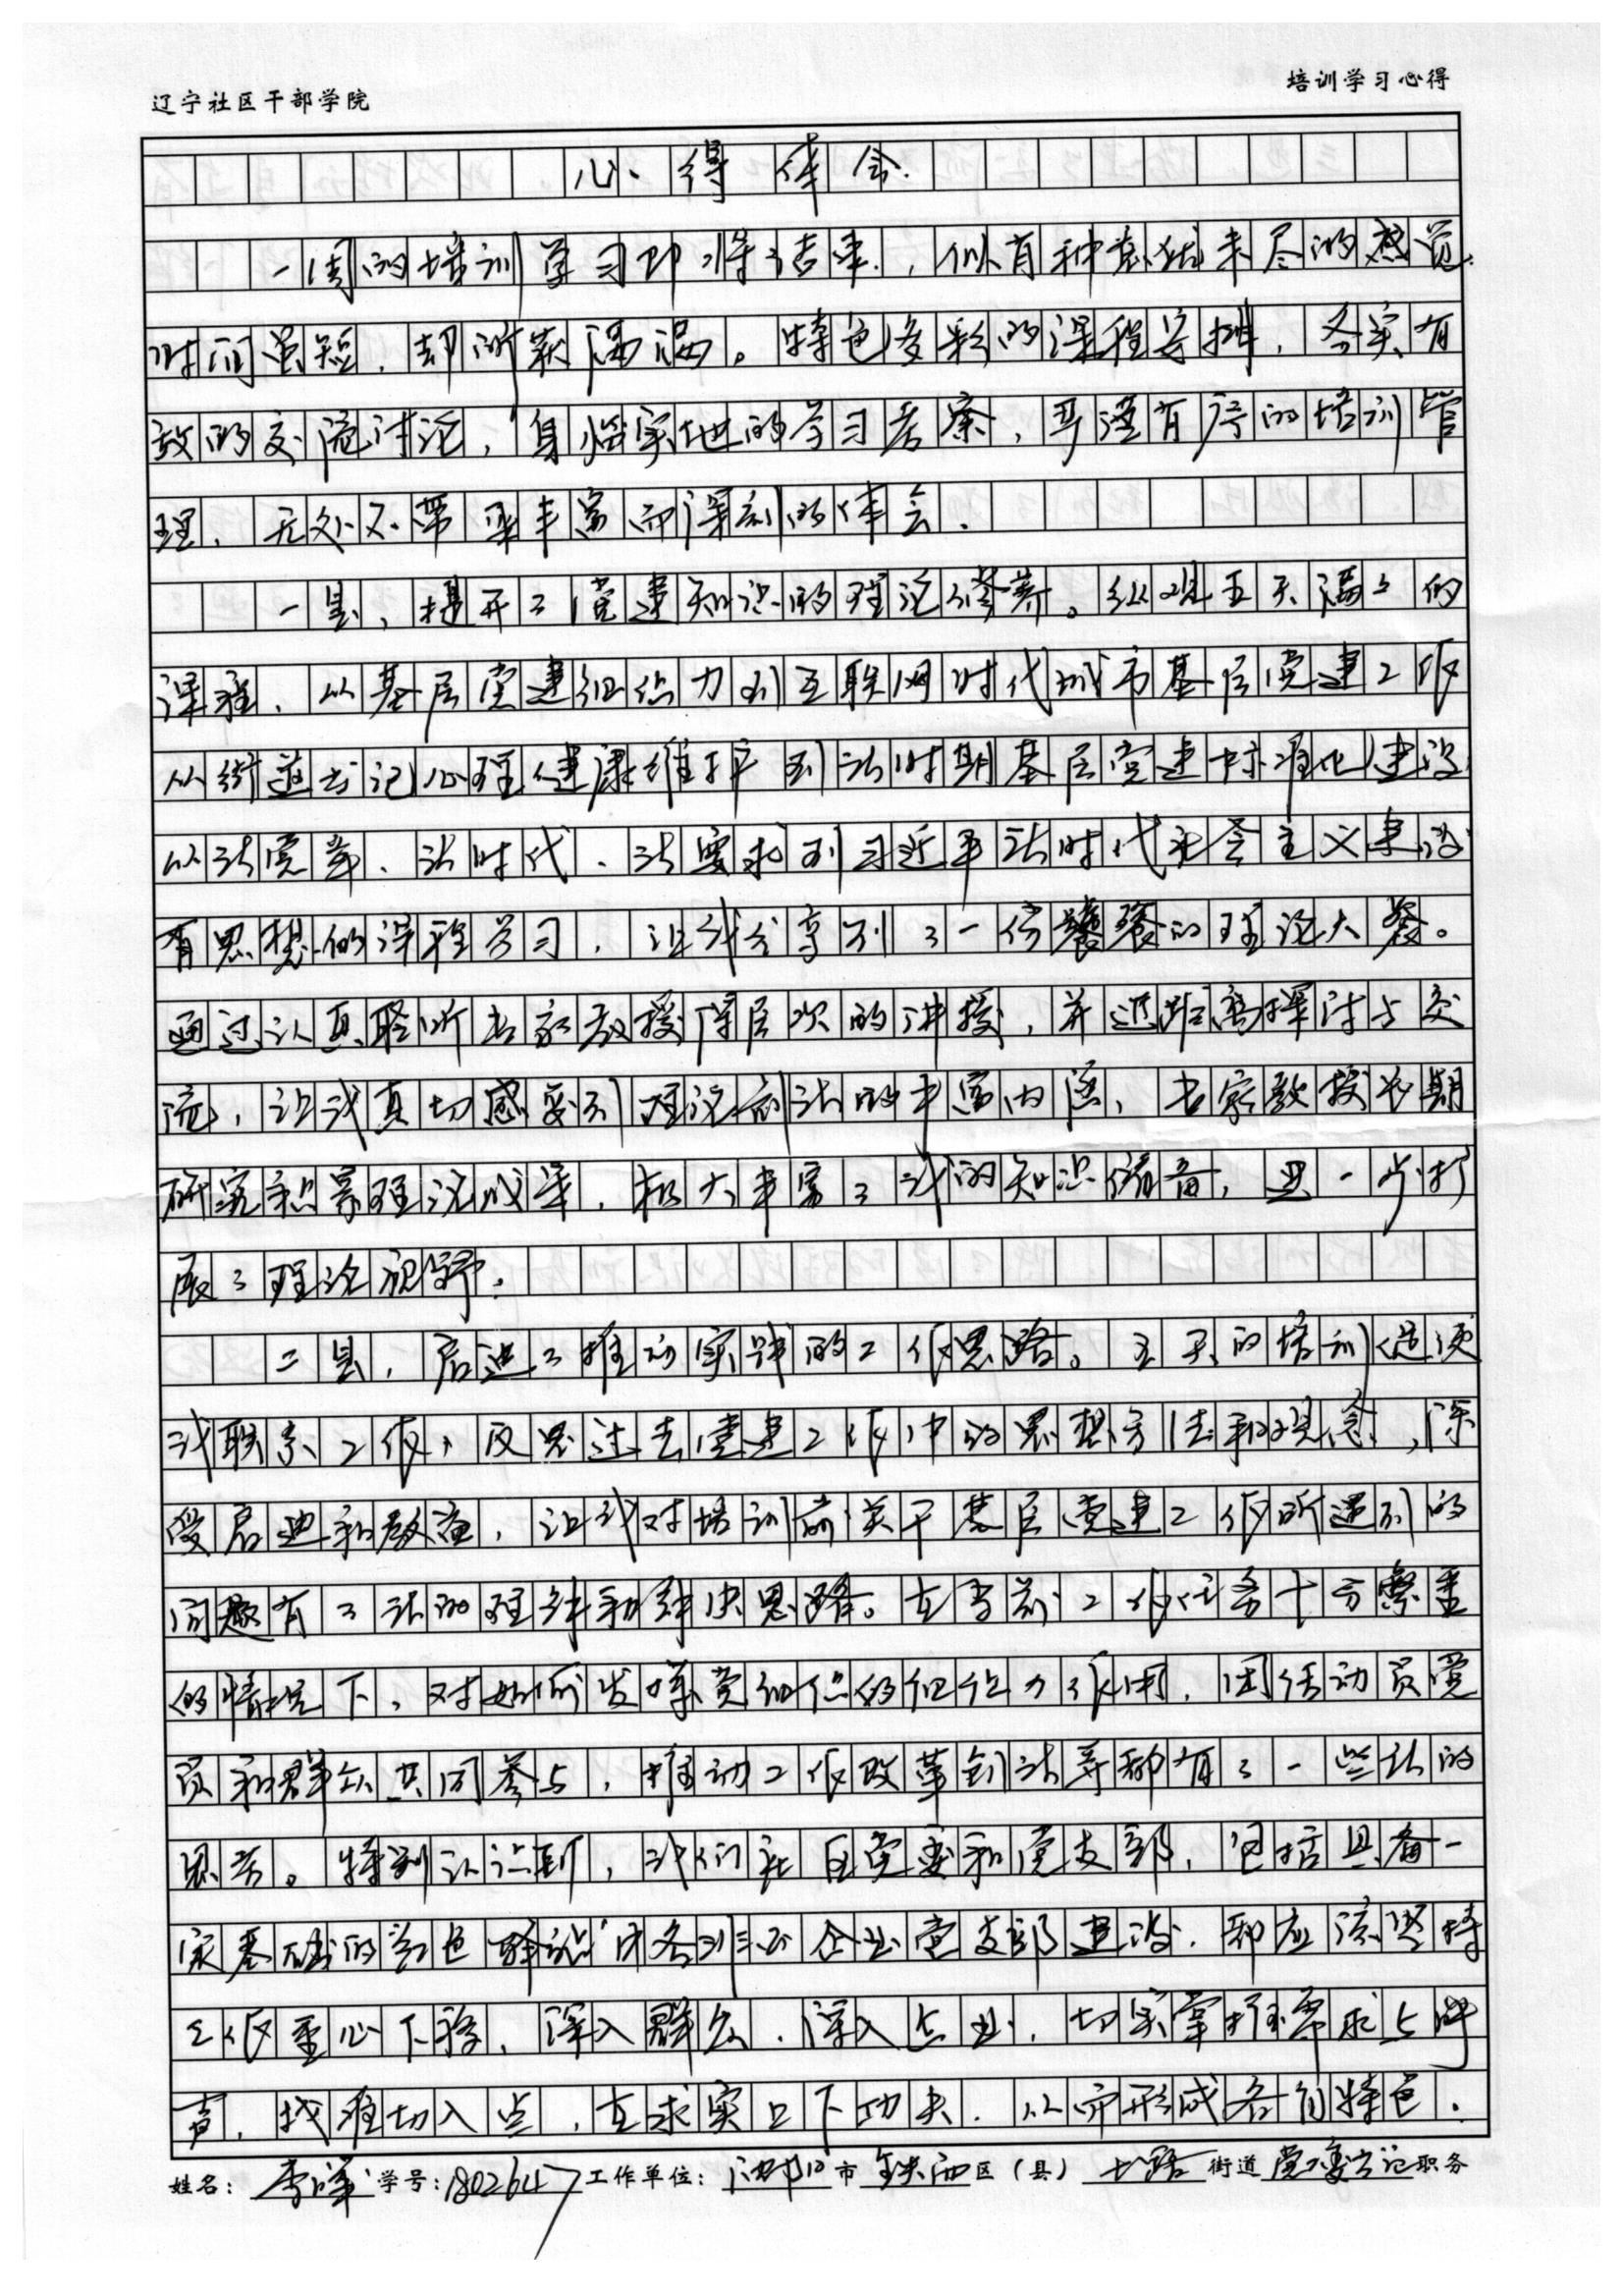 辽宁社区干部学院
培训学习心得
心得体会
一周的培训学习即将结束，似有种意犹未尽的感觉.
时间虽短，却所获满满。特色多彩的课程安排，务实有
效的交流讨论，身临实地的学习考察，严谨有序的培训管
理，无处不带来丰富而深刻的体会.
一是，提升了党建知识的理论修养。纵观五天满满的
课程，从基层党建组织力到互联网时代城市基层党建工作
从街道书记心理健康维护到新时期基层党建标准化建设
从新党章、新时代、新要求到习近平新时代社会主义建设
有思想的课程学习，让我分享到了一份饕餮的理论大餐。
通过认真聆听专家教授深层次的讲授，并近距离探讨与交
流，让我真切感受到理论前沿的丰富内涵，专家教授长期
研究积累理论成果，极大丰富了我的知识储备，进一步打
展了理论视野.
二是，启迪了推动实践的工作思路。五天的培训促使
我联系工作，反思过去党建工作中的思想方法和观念，深
受启迪和教益，让我对培训前关于基层党建工作所遇到的
问题有了新的理解和解决思路。在当前工作任务十分繁重
的情况下，对如何发挥党组织的组织力作用，团结动员党
员和群众共同参与，推动工作改革创新等都有了一些新的
思考。特别认识到，我们社区党委和党支部，包括具备一
定基础的红色驿站内各非公企业党支部建设，都应该坚持
工作重心下移，深入群众，深入企业，切实掌握需求与呼
声，找准切入点，在求实上下功夫.从而形成各自特色.
姓名： 学号：1802647 工作单位：沈阳市铁西区（县） 七路街道党工委书记职务